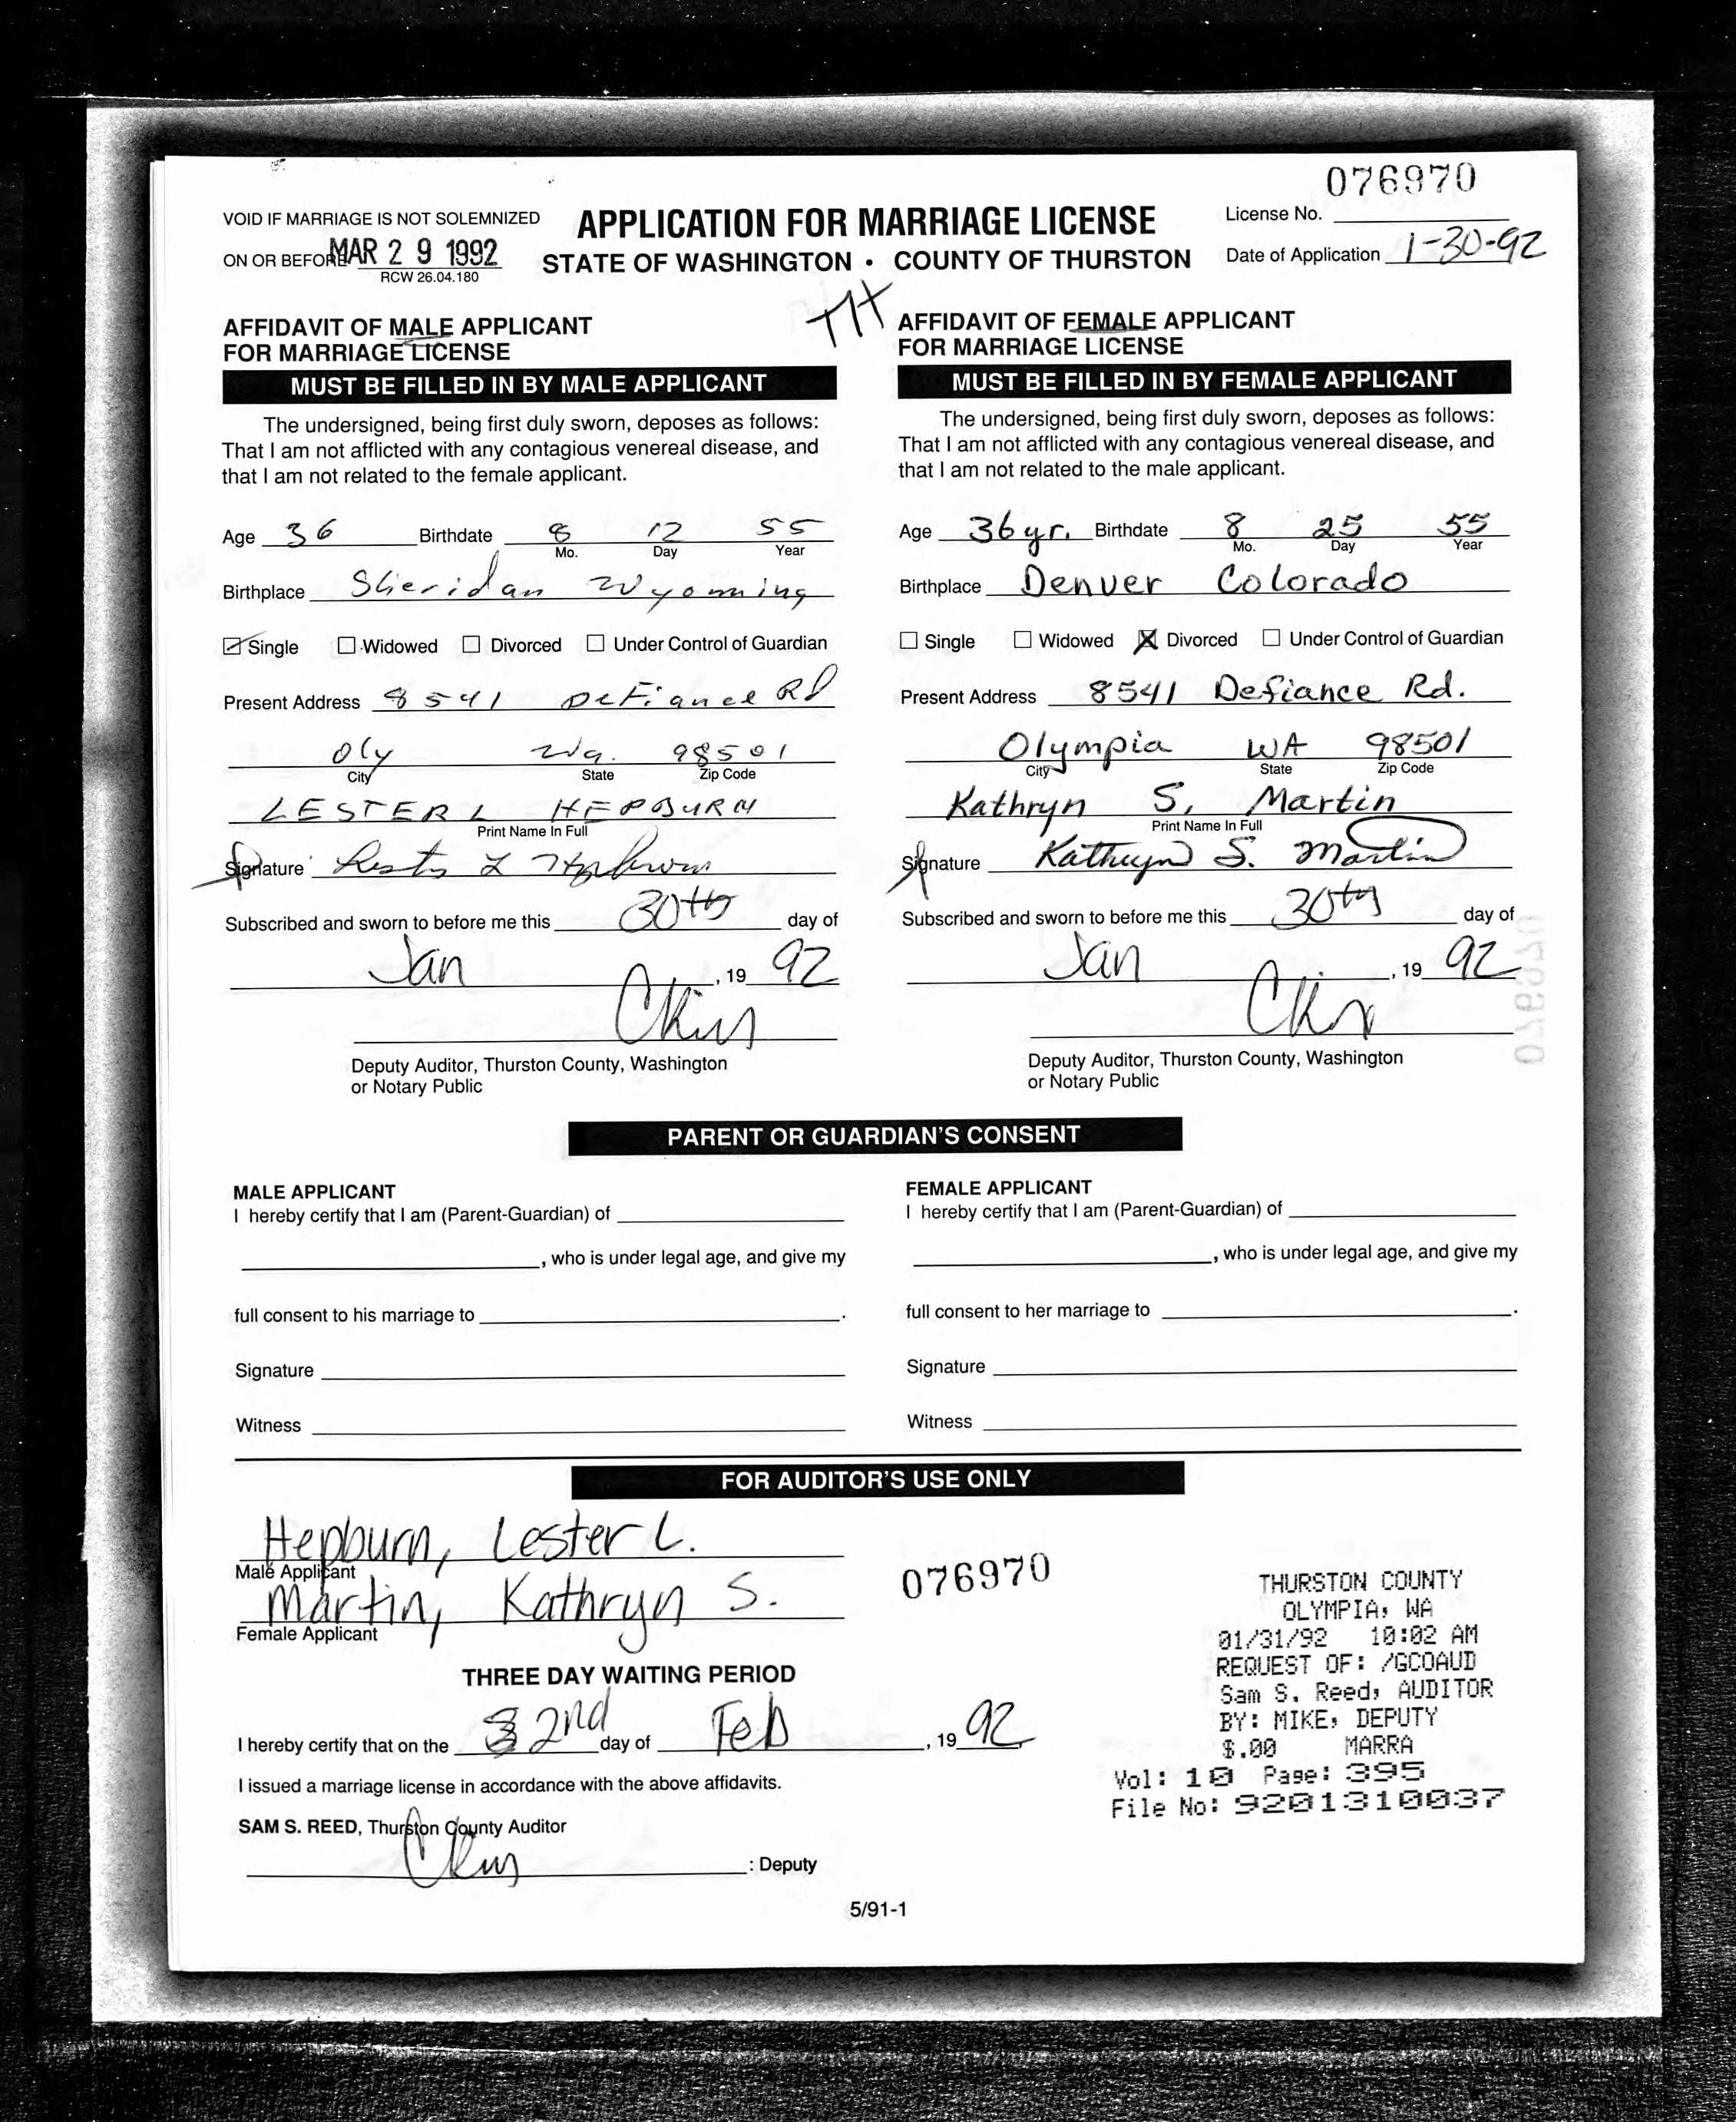 076970
VOID IF MARRIAGE IS NOT SOLEMNIZED
ON OR BEFORE MAR 29 1992
RCW 26.04.180
APPLICATION FOR MARRIAGE LICENSE
STATE OF WASHINGTON • COUNTY OF THURSTON
License No.
Date of Application 1-30-92
AFFIDAVIT OF MALE APPLICANT
FOR MARRIAGE LICENSE
MUST BE FILLED IN BY MALE APPLICANT
The undersigned, being first duly sworn, deposes as follows:
That I am not afflicted with any contagious venereal disease, and
that I am not related to the female applicant.
Age 36 Birthdate 8 12 55
Mo. Day Year
Birthplace Sheridan Wyoming
Single Widowed Divorced Under Control of Guardian
Present Address 8541 Defiance Rd
Oly Wa. 98501
City State Zip Code
LESTER L HEPBURN
Print Name In Full
Signature Lester L Hepburn
Subscribed and sworn to before me this 30th day of
Jan , 19 92
Deputy Auditor, Thurston County, Washington
or Notary Public
AFFIDAVIT OF FEMALE APPLICANT
FOR MARRIAGE LICENSE
MUST BE FILLED IN BY FEMALE APPLICANT
The undersigned, being first duly sworn, deposes as follows:
That I am not afflicted with any contagious venereal disease, and
that I am not related to the male applicant.
Age 36 yr. Birthdate 8 25 55
Mo. Day Year
Birthplace Denver Colorado
Single Widowed X Divorced Under Control of Guardian
Present Address 8541 Defiance Rd.
Olympia WA 98501
City State Zip Code
Kathryn S. Martin
Print Name In Full
Signature Kathryn S. Martin
Subscribed and sworn to before me this 30th day of
Jan , 19 92
Deputy Auditor, Thurston County, Washington
or Notary Public
PARENT OR GUARDIAN'S CONSENT
MALE APPLICANT
I hereby certify that I am (Parent-Guardian) of
, who is under legal age, and give my
full consent to his marriage to .
Signature
Witness
FEMALE APPLICANT
I hereby certify that I am (Parent-Guardian) of
, who is under legal age, and give my
full consent to her marriage to .
Signature
Witness
FOR AUDITOR'S USE ONLY
Hepburn, Lester L.
Male Applicant
Martin, Kathryn S.
Female Applicant
076970
THREE DAY WAITING PERIOD
I hereby certify that on the 2nd day of Feb , 19 92
I issued a marriage license in accordance with the above affidavits.
SAM S. REED, Thurston County Auditor
: Deputy
THURSTON COUNTY
OLYMPIA, WA
01/31/92 10:02 AM
REQUEST OF: /GCOAUD
Sam S. Reed, AUDITOR
BY: MIKE, DEPUTY
$.00 MARRA
Vol: 10 Page: 395
File No: 9201310037
5/91-1